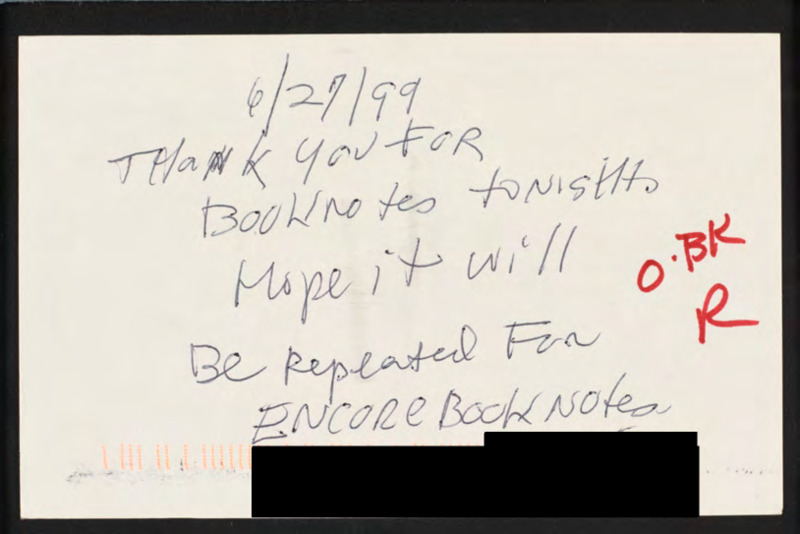 6/27/99
THANK YOU FOR
BOOKNotes tONIGHt.
Hope it will
O.BK
R
Be Repeated For
ENCORE BOOKNOtes